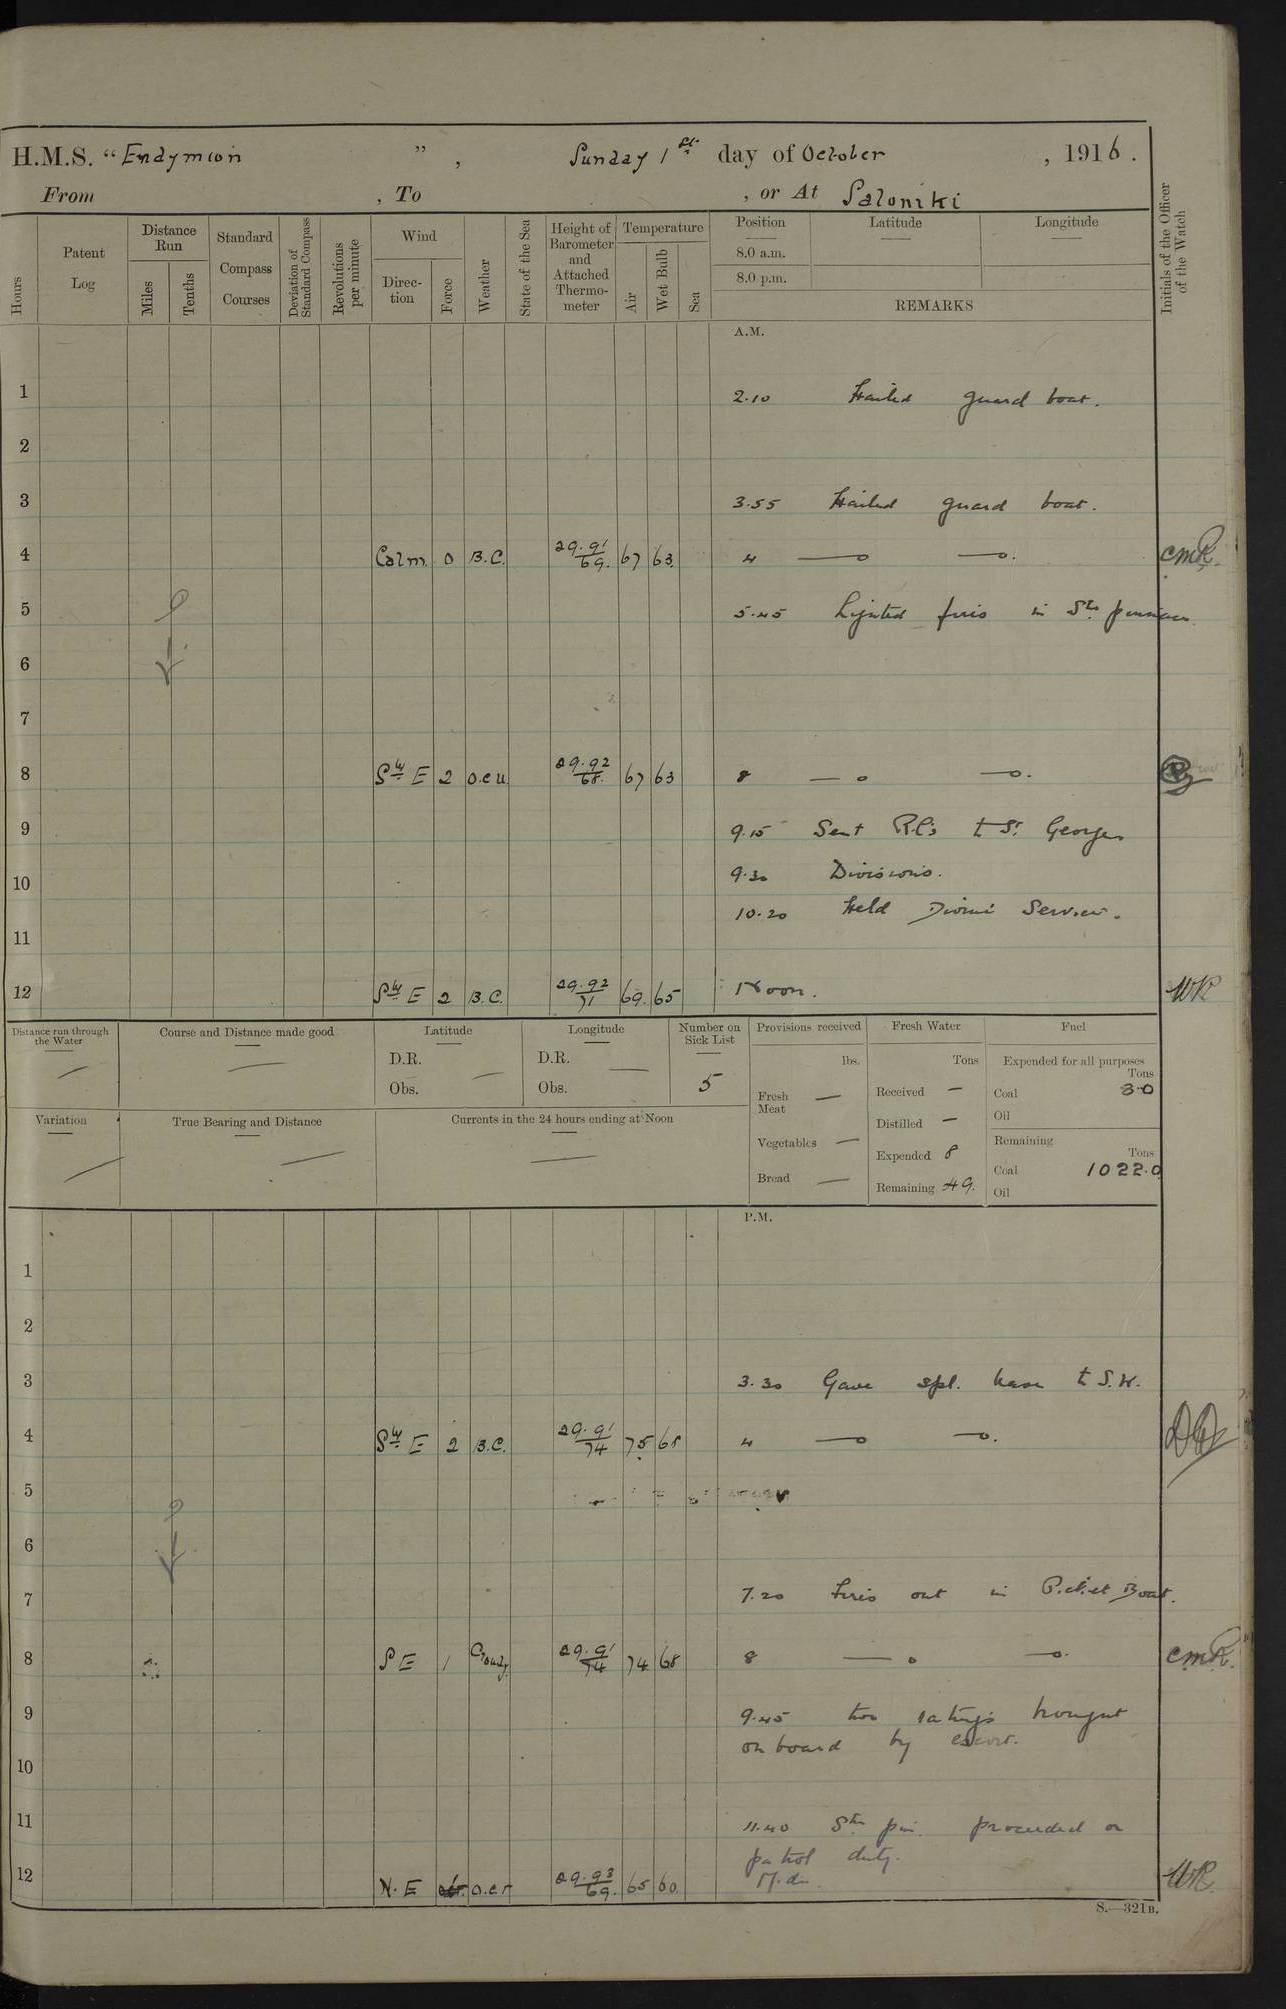 H.M.S. "Endymion", Sunday 1st day of October, 1916.
From , To , or At Saloniki
Hours
Patent Log
Distance Run
Miles
Tenths
Standard Compass Courses
Deviation of Standard Compass
Revolutions per minute
Wind
Direction
Force
Weather
State of the Sea
Height of Barometer and Attached Thermometer
Temperature
Air
Wet Bulb
Sea
Position
Latitude
Longitude
8.0 a.m.
8.0 p.m.
REMARKS
Initials of the Officer of the Watch
A.M.
1 2.10 Hailed guard boat.
2
3 3.55 Hailed guard boat.
4 Calm 0 B.C. 29.91/69. 67 63. 4 —o —o. CMR.
5 5.45 Lighted fires in Stm pinnace
6
7
8 Sly E 2 o.c.u 29.92/68. 67 63 8 —o —o.
9 9.15 Sent R.C's to St Georges
10 9.30 Divisions.
10.20 Held Divine Service.
11
12 Sly E 2 B.C. 29.92/71 69. 65 Noon. WR
Distance run through the Water
—
Course and Distance made good
—
Latitude
D.R.
Obs.
—
Longitude
D.R.
Obs.
—
Number on Sick List
5
Provisions received
lbs.
Fresh Meat —
Vegetables —
Bread —
Fresh Water
Tons
Received —
Distilled —
Expended 8
Remaining 49.
Fuel
Expended for all purposes
Tons
Coal 30
Oil
Remaining
Tons
Coal 1022.0
Oil
Variation
—
True Bearing and Distance
—
Currents in the 24 hours ending at Noon
—
P.M.
1
2
3 3.30 Gave spl. leave to S.H.
4 Sly E 2 B.C. 29.91/74 75 68 4 —o —o.
5
6
7 7.20 Fires out in Picket Boat.
8 SE 1 Cloudy 29.91/74 74 68 8 —o —o. CMR.
9 9.45 two ratings brought
on board by escort.
10
11 11.40 Stm pin. proceeded on
patrol duty.
12 N.E o.c.r 29.93/69. 65 60. M.dn. WR.
S.—321B.